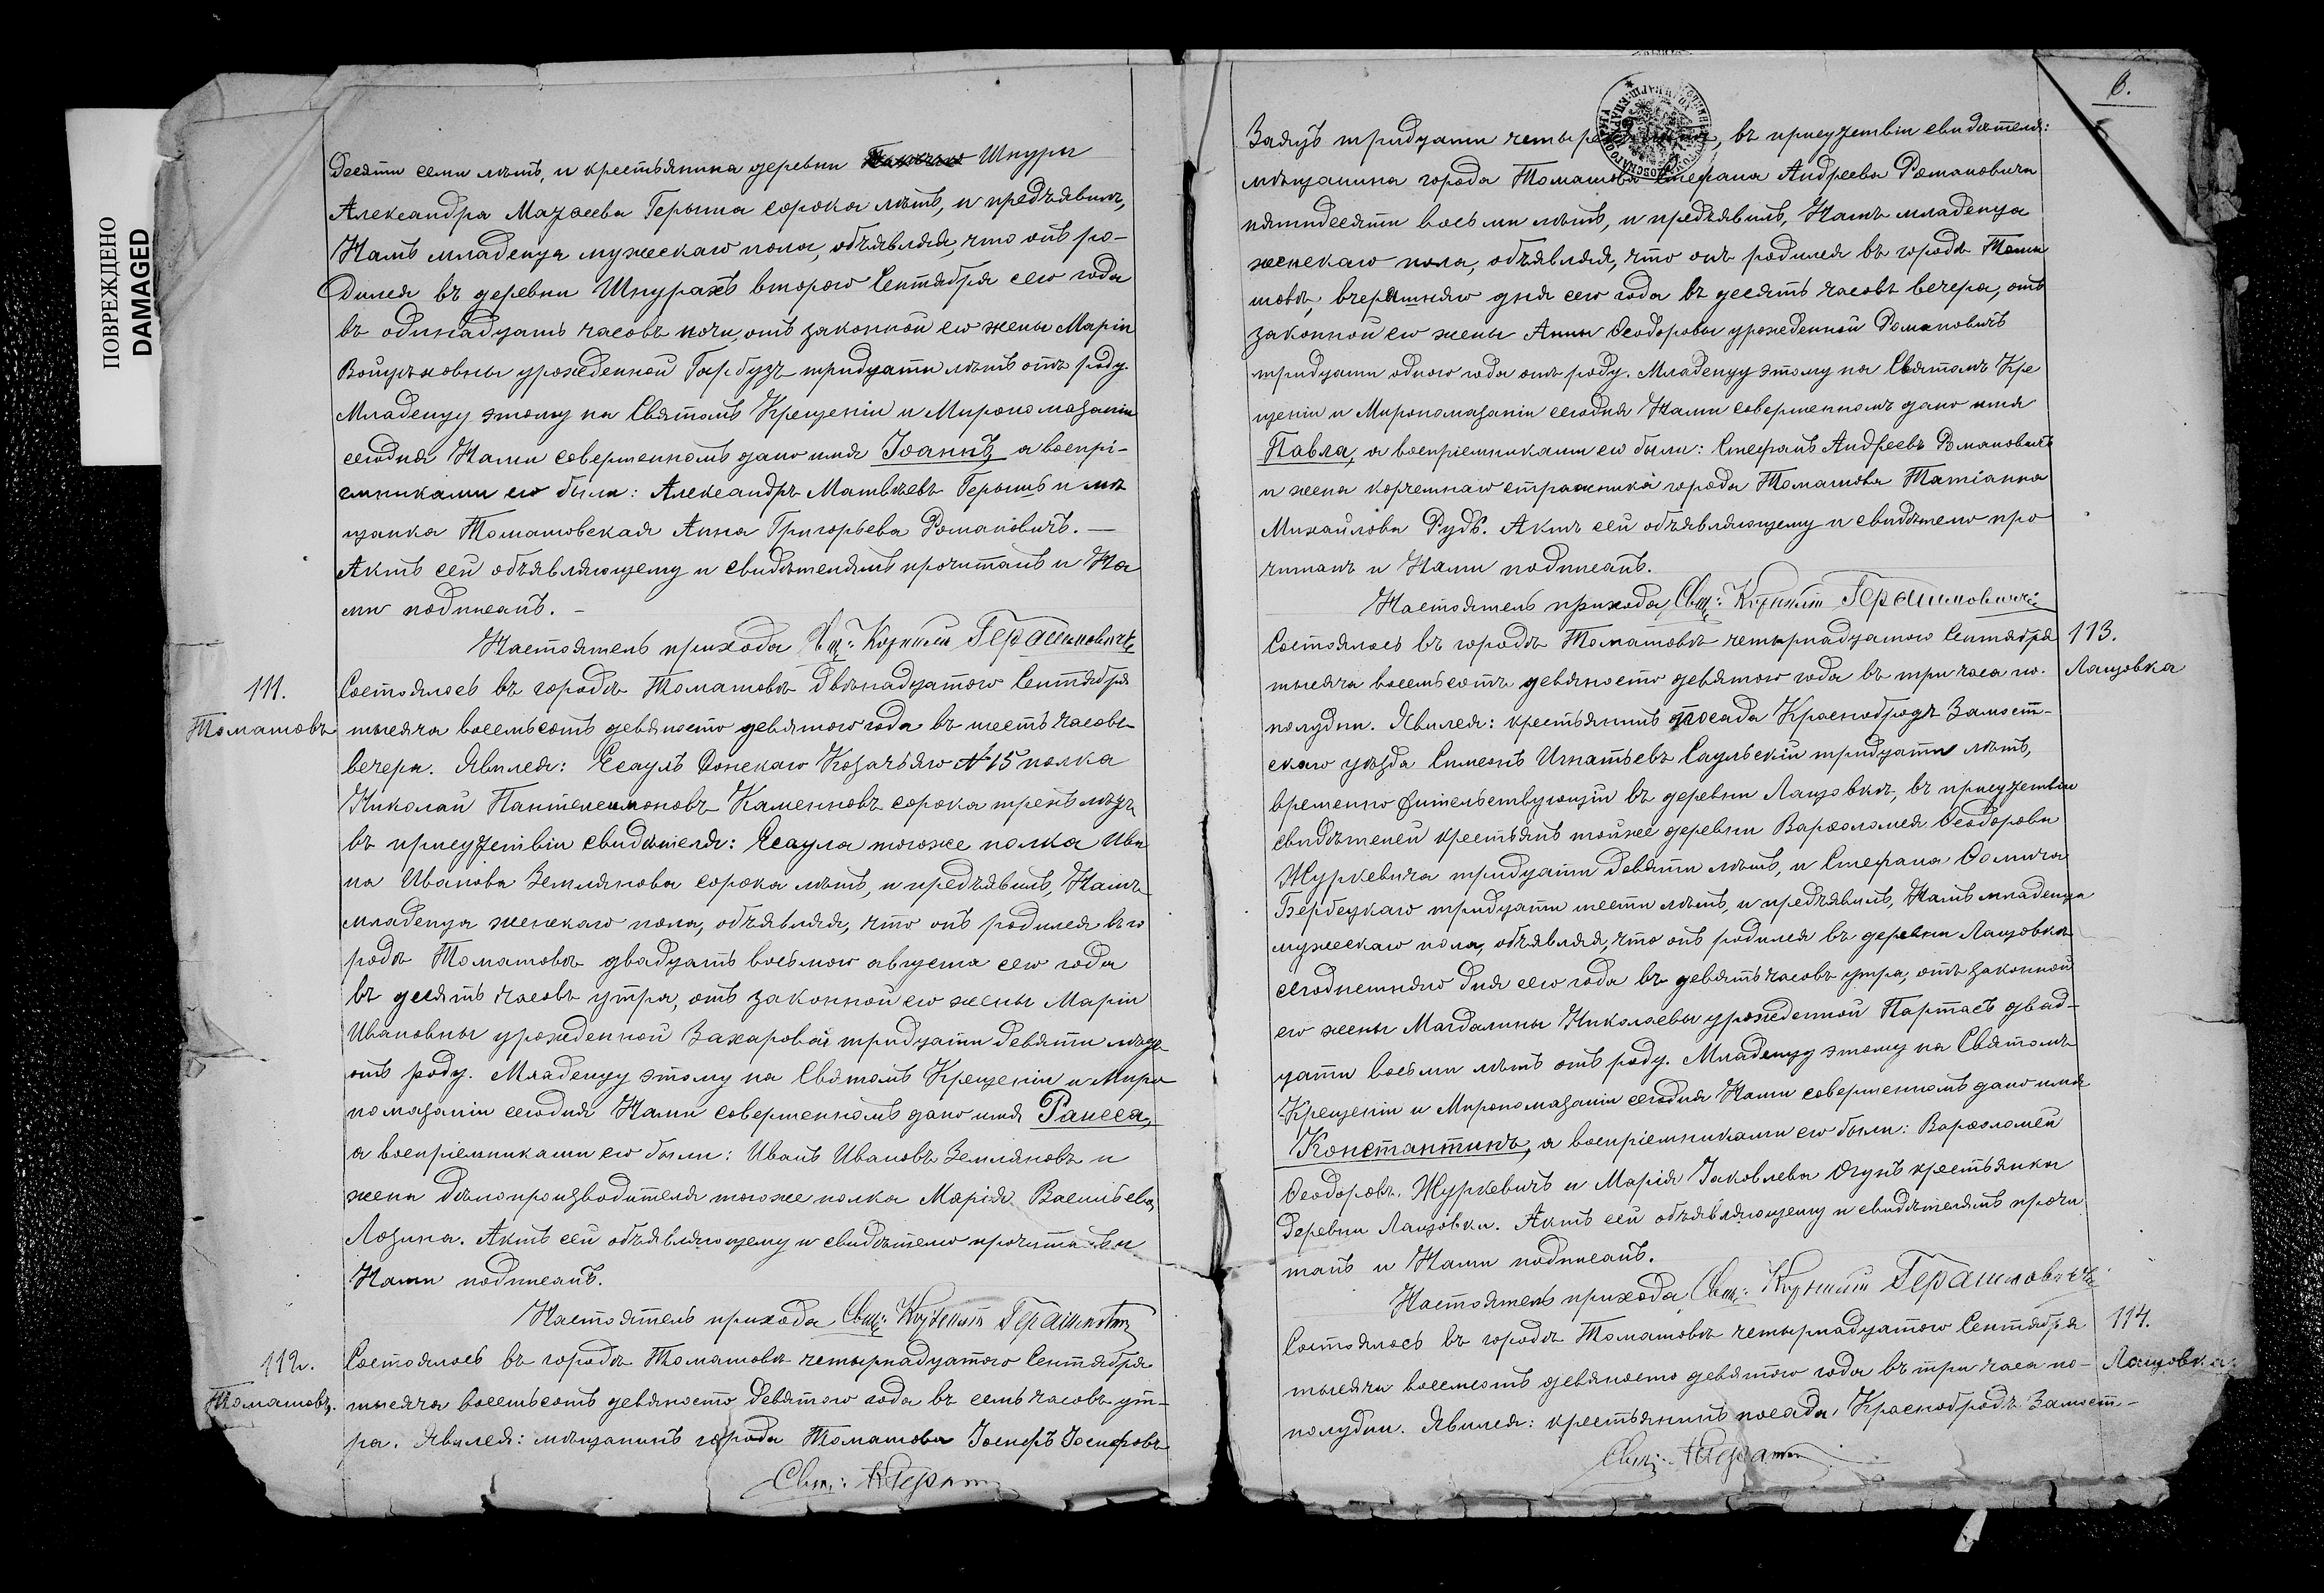 ПОВРЕЖДЕНО
DAMAGED
десяти семи лѣтъ, и крестьянина деревни Шнуры
Александра Матѳеева Герыша сорока лѣтъ, и предъявилъ,
Намъ младенца мужескаго пола, объявляя, что онъ ро-
дился въ деревни Шнурахъ втораго Сентября сего года
въ одинадцать часовъ ночи, отъ законной его жены Маріи
Войцѣховны урожденной Гарбузъ тридцати лѣтъ отъ роду.
Младенцу этому на Святомъ Крещеніи и Миропомазаніи
сегодня Нами совершенномъ дано имя Іоаннъ, а воспрі-
емниками его были: Александръ Матвѣевъ Герышъ и мѣ
щанка Томашовская Анна Григорьева Романовичъ. —
Актъ сей объявляющему и свидѣтелямъ прочитанъ и На
ми подписанъ. –
Настоятель прихода Свщ: Корнилій Герашимовичъ
111.
Томашовъ
Состоялось въ городѣ Томашовѣ двѣнадцатого Сентября
тысяча восемьсотъ девяносто девятого года въ шесть часовъ
вечера. Явился: Есаулъ Донскаго Козачьяго №15 полка
Николай Пантелеимоновъ Каменновъ сорока трехъ лѣтъ
въ присутствіи свидѣтеля: Есаула тогоже полка Ива
на Иванова Землянова сорока лѣтъ, и предъявилъ, Намъ
младенца женскаго пола, объявляя, что онъ родился въ го
родѣ Томашовѣ двадцать восьмого августа сего года
въ десять часовъ утра, отъ законной его жены Маріи
Ивановны урожденной Захаровой тридцати девяти лѣтъ
отъ роду. Младенцу этому на Святомъ Крещеніи и Миро
помазаніи сегодня Нами совершенномъ дано имя Раисса,
а воспріемниками его были: Иванъ Ивановъ Земляновъ и
жена дѣлопроизводителя тогоже полка Марія Васильева
Лозина. Актъ сей объявляющему и свидѣтелю прочитанъ и
Нами подписанъ.
Настоятель прихода Свщ: Корнилій Герашимовичъ
112.
Томашовъ.
Состоялось въ городѣ Томашовѣ четырнадцатого Сентября
тысяча восемьсотъ девяносто девятого года въ семь часовъ ут-
ра. Явился: мѣщанинъ города Томашова Іосифъ Іосифовъ
Свщ:
6.
Заяцъ тридцати четырехъ лѣтъ, въ присутствіи свидѣтеля:
мѣщанина города Томашова Стефана Андреева Романовича
пятидесяти восьми лѣтъ, и предъявилъ, Намъ младенца
женскаго пола, объявляя, что онъ родился въ городѣ Тома
шовѣ, вчерашняго дня сего года въ десять часовъ вечера, отъ
законной его жены Анны Ѳеодоровы урожденной Романовичъ
тридцати одного года отъ роду. Младенцу этому на Святомъ Кре
щеніи и Миропомазаніи сегодня Нами совершенномъ дано имя
Павла, а воспріемниками его были: Стефанъ Андреевъ Романовичъ
и жена корчемнаго стражника города Томашова Татіанна
Михайлова Рудь. Актъ сей объявляющему и свидѣтелю про
читанъ и Нами подписанъ.
Настоятель прихода, Свщ: Корнилій Герашимовичъ
113.
Лащовка
Состоялось въ городѣ Томашовѣ четырнадцатого Сентября
тысяча восемьсотъ девяносто девятого года въ три часа по-
полудни. Явился: крестьянинъ посада Краснобродъ Замост-
скаго уѣзда Симеонъ Игнатьевъ Саульскій тридцати лѣтъ,
временно жительствующій въ деревни Лащовкѣ, въ присутствіи
свидѣтелей крестьянъ тойже деревни Варѳоломея Ѳеодорова
Журкевича тридцати девяти лѣтъ, и Стефана Ѳомича
Бербецкаго тридцати шести лѣтъ, и предъявилъ, Намъ младенца
мужескаго пола, объявляя, что онъ родился въ деревни Лащовкѣ
сегоднешняго дня сего года въ девять часовъ утра, отъ законной
его жены Магдалины Николаевы урожденной Парташъ двад-
цати восьми лѣтъ отъ роду. Младенцу этому на Святомъ
Крещеніи и Миропомазаніи сегодня Нами совершенномъ дано имя
Константинъ, а воспріемниками его были: Варѳоломей
Ѳеодоровъ Журкевичъ и Марія Іаковлева Огунъ крестьянка
деревни Лащовки. Актъ сей объявляющему и свидѣтелямъ прочи
танъ и Нами подписанъ.
Настоятель прихода Свщ: Корнилій Герашимовичъ
114.
Лащовка.
Состоялось въ городѣ Томашовѣ четырнадцатого Сентября
тысяча восемьсотъ девяносто девятого года въ три часа по-
полудни. Явился: крестьянинъ посада Краснобродъ Замост-
Свщ: